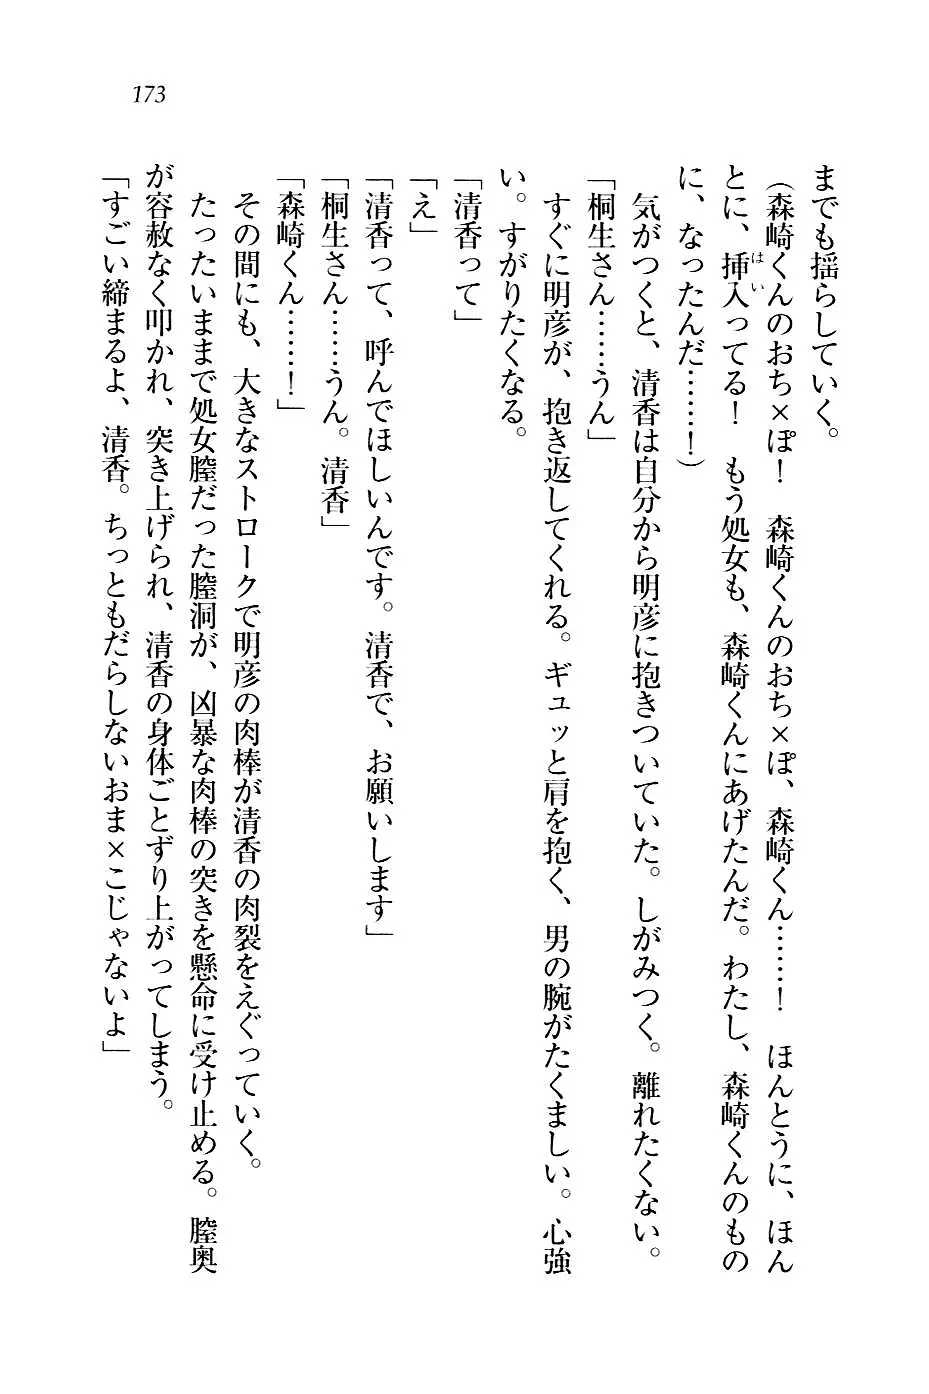 173
までも揺らしていく。
（森崎くんのおち×ぽ！　森崎くんのおち×ぽ、森崎くん……！　ほんとうに、ほん
とに、挿入ってる！　もう処女も、森崎くんにあげたんだ。わたし、森崎くんのもの
に、なったんだ……！）
　気がつくと、清香は自分から明彦に抱きついていた。しがみつく。離れたくない。
「桐生さん……うん」
　すぐに明彦が、抱き返してくれる。ギュッと肩を抱く、男の腕がたくましい。心強
い。すがりたくなる。
「清香って」
「え」
「清香って、呼んでほしいんです。清香で、お願いします」
「桐生さん……うん。清香」
「森崎くん……！」
　その間にも、大きなストロークで明彦の肉棒が清香の肉裂をえぐっていく。
　たったいままで処女膣だった膣洞が、凶暴な肉棒の突きを懸命に受け止める。膣奥
が容赦なく叩かれ、突き上げられ、清香の身体ごとずり上がってしまう。
「すごい締まるよ、清香。ちっともだらしないおま×こじゃないよ」